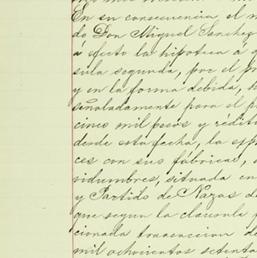 En su consecuencia el
do Don Miguel Sanchez
á efecto la hipoteca á
sula segunda, por el
y en la forma debida, h
señaladamente para el p
cinco mil pesos y rédito
desde esta fecha, la esp
ces con sus fábricas, a
vidumbres, situada en
y Partido de Nazas de
que segun la cláusula
cionada transaccion de
mil ochocientos setenta